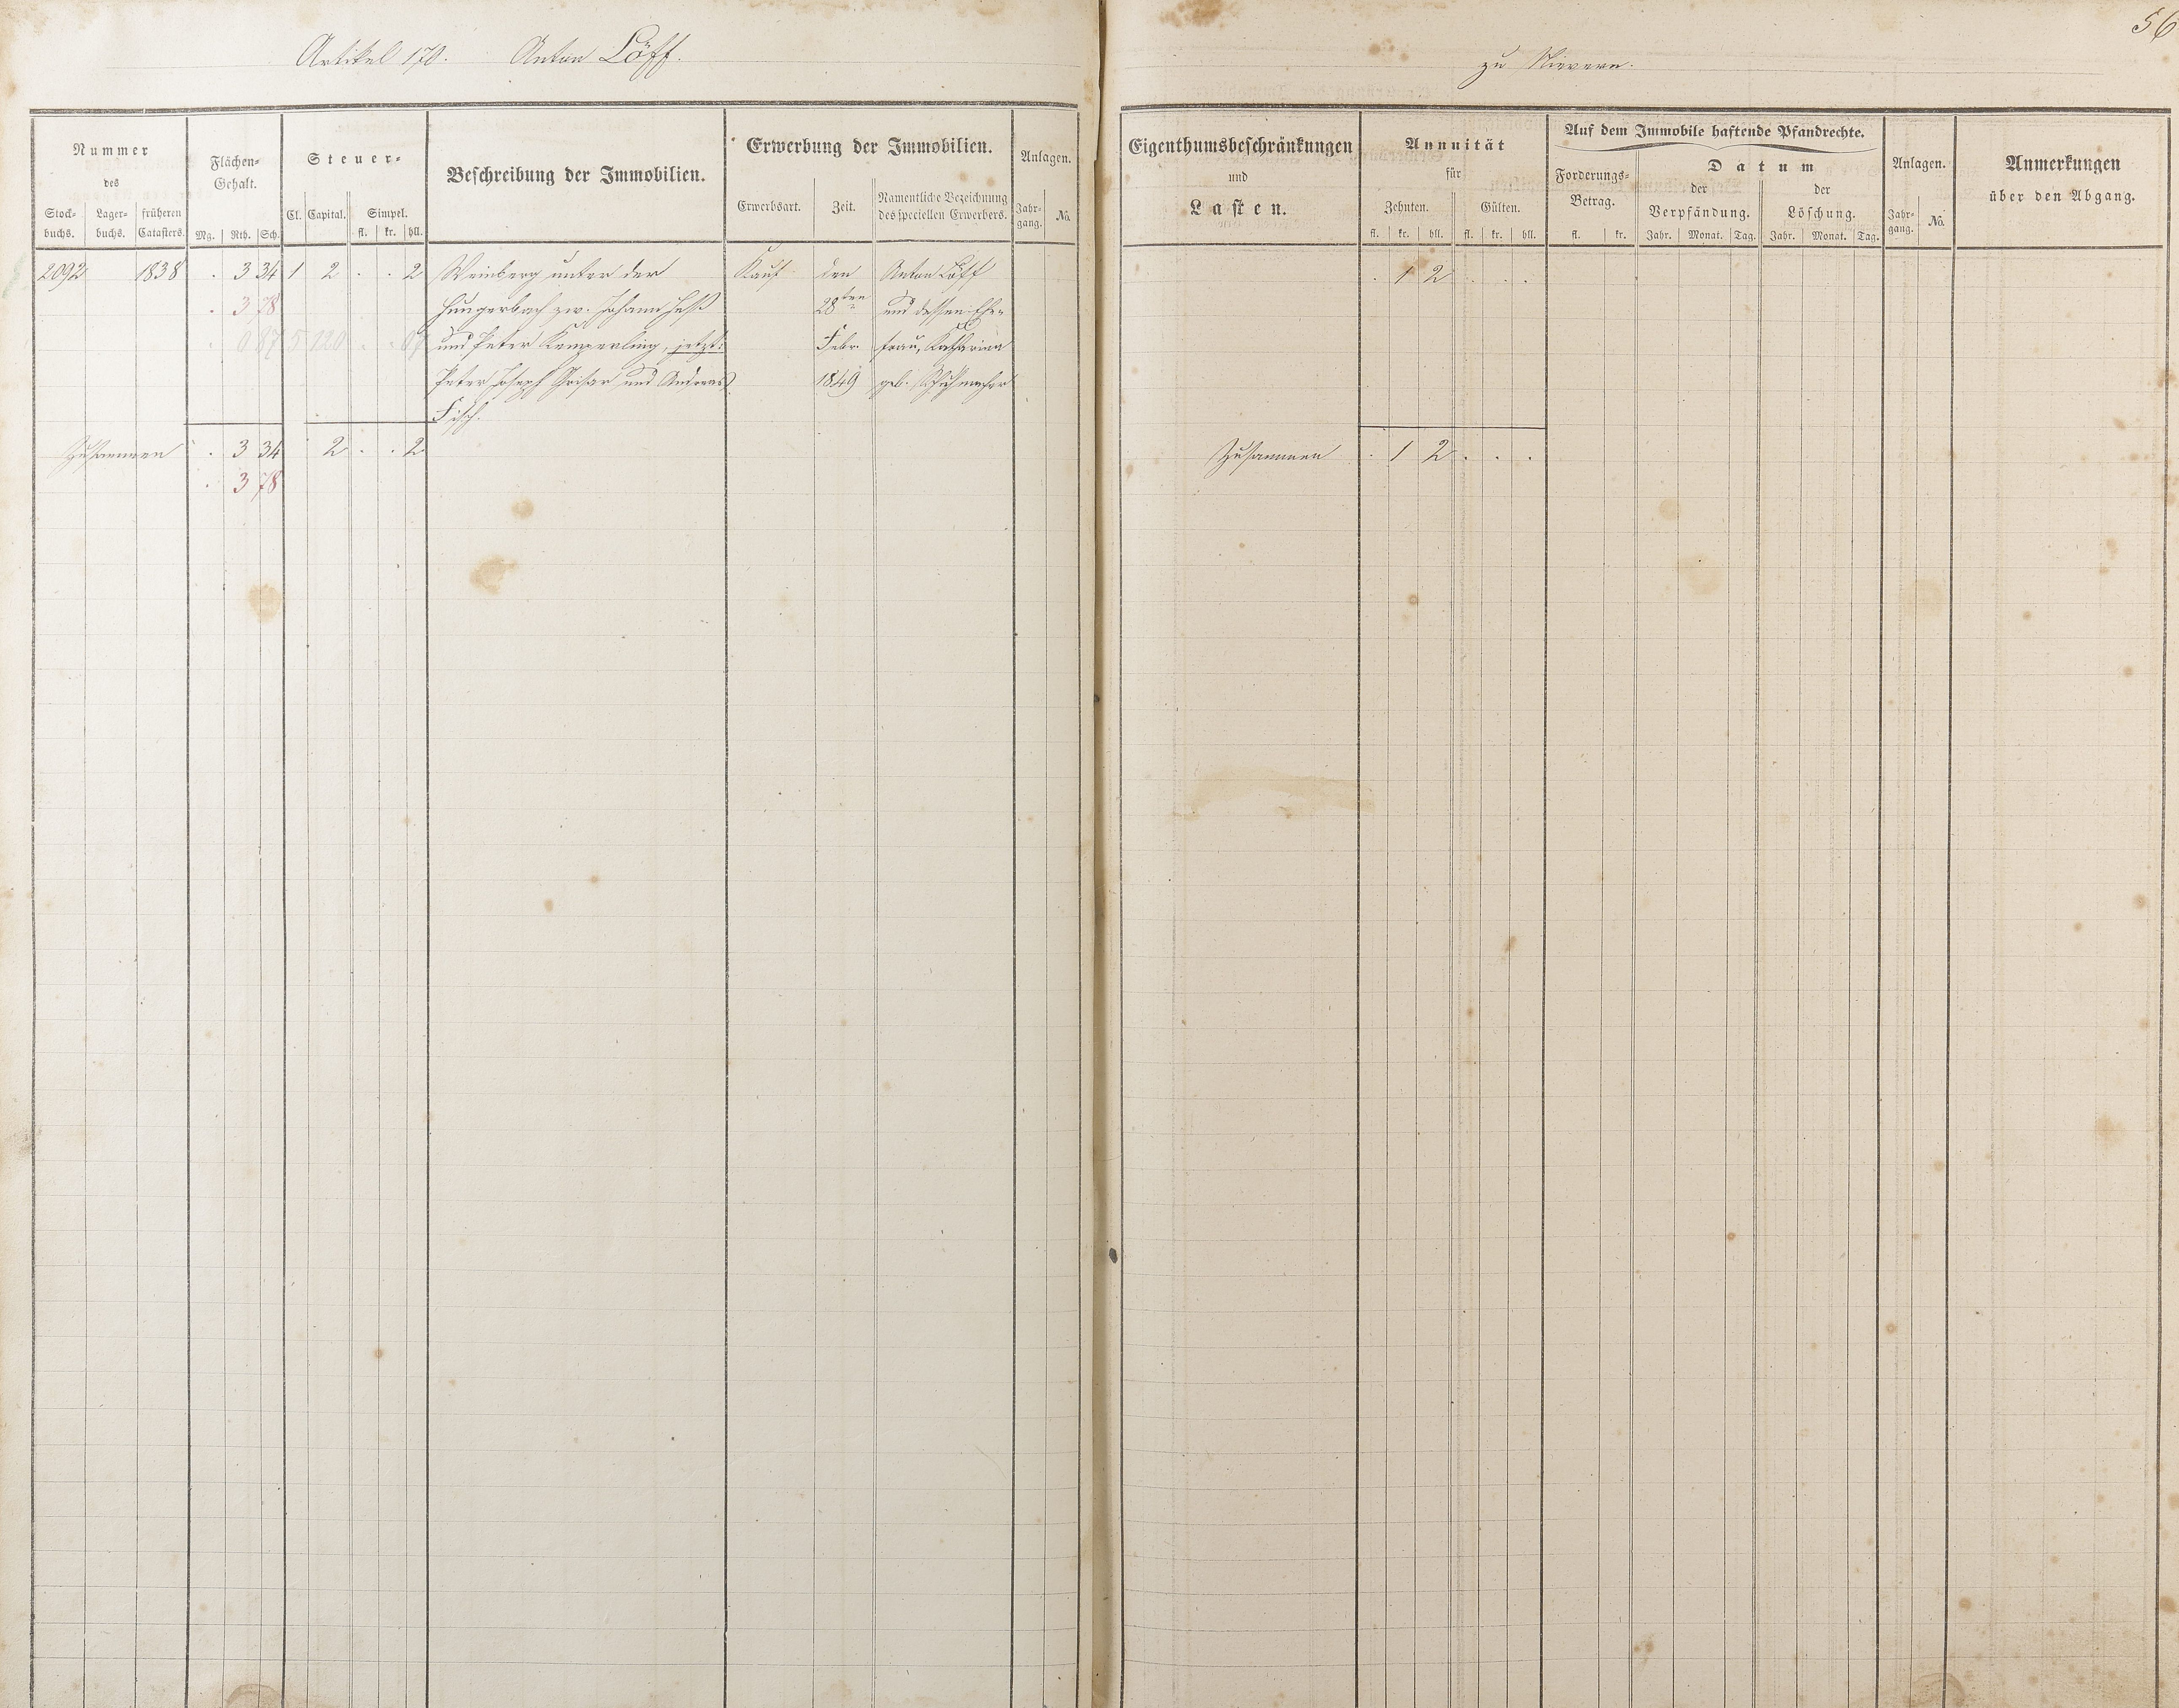 56
Artikel 170. Anton Löff.
zu Nievern.
Nummer
des
Stock- buchs. Lager- buchs. früheren Catasters.
Flächen- Gehalt.
Mg. Rth. Sch.
Steuer-
Cl. Capital. Simpel.
fl. kr. hll.
Beschreibung der Immobilien.
Erwerbung der Immobilien.
Erwerbsart. Zeit. Namentliche Bezeichnung des speciellen Erwerbers.
Anlagen.
Jahr- gang. No.
2092 1838 . 3 34 1 2 . . 2 Weinberg unter der Kauf den Anton Löff
. 3 78 Hungerbach zw. Johann Heß 28ten und dessen Ehe-
. 0 87 5 120 . . 07 und Peter Kemperling, jetzt: Febr. frau, Katharina
Peter Joseph Grisar und Andreas 1849 geb. Schuhmacher
Fisch.
Zusammen . 3 34 2 . . 2
. 3 78
Eigenthumsbeschränkungen
und
Lasten.
Annuität
für
Zehnten. Gülten.
fl. kr. hll. fl. kr. hll.
Auf dem Immobile haftende Pfandrechte.
Forderungs- Betrag.
fl. kr.
Datum
der Verpfändung. der Löschung.
Jahr. Monat. Tag. Jahr. Monat. Tag.
Anlagen.
Jahr- gang. No.
Anmerkungen
über den Abgang.
. 1 2 . . .
Zusammen . 1 2 . . .